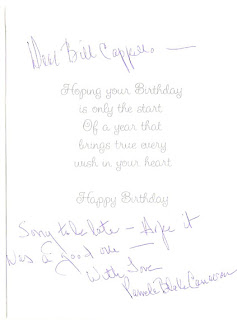 Dear Bill Cappello —
Hoping your Birthday
is only the start
Of a year that
brings true every
wish in your heart
Happy Birthday
Sorry to be late — Hope it
was a good one —
With Love
Pamela Blake Canavan